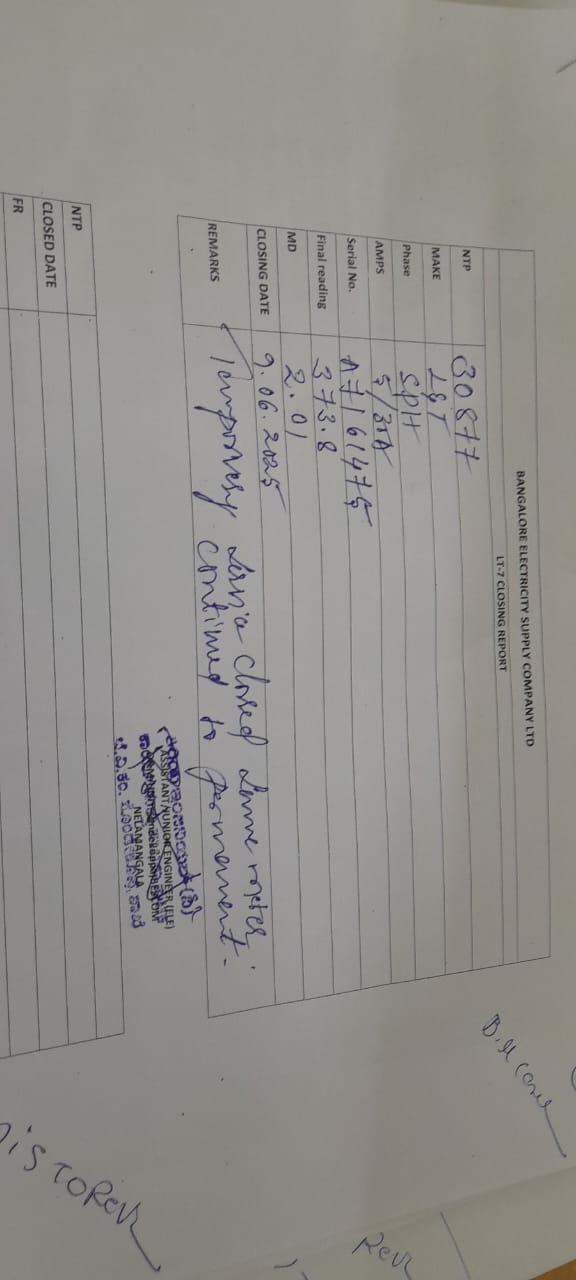 BANGALORE ELECTRICITY SUPPLY COMPANY LTD
LT-7 CLOSING REPORT
NTP 30877
MAKE L&T
Phase SPH
AMPS 5/30A
Serial No. A7161475
Final reading 373.8
MD 2.01
CLOSING DATE 9.06.2025
REMARKS Temporary closed same meter
contined to permenent.
ASSISTANT/JUNIOR ENGINEER (ELE)
NELAMANGALA
NTP
CLOSED DATE
FR